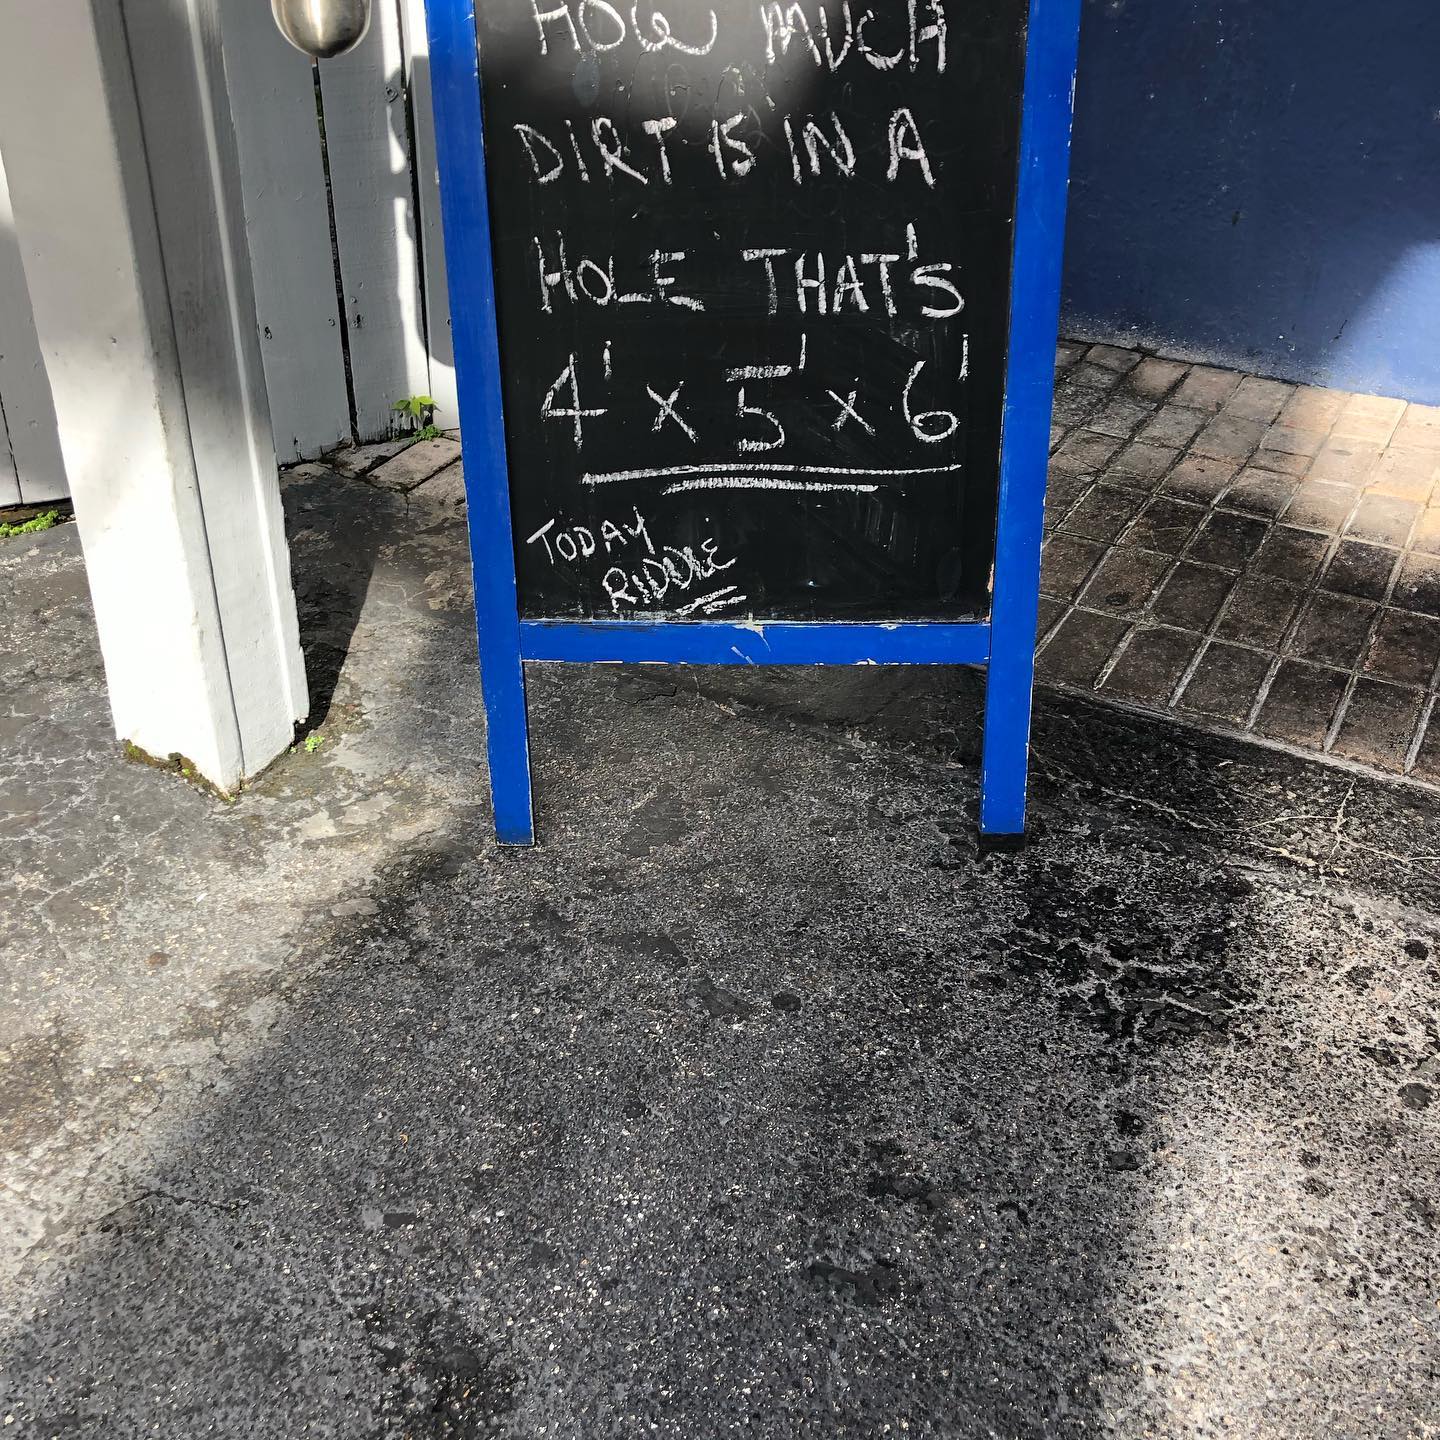 HOW MUCH
DIRT IS IN A
HOLE THAT'S
4' x 5' x 6'
TODAY
RIDDLE